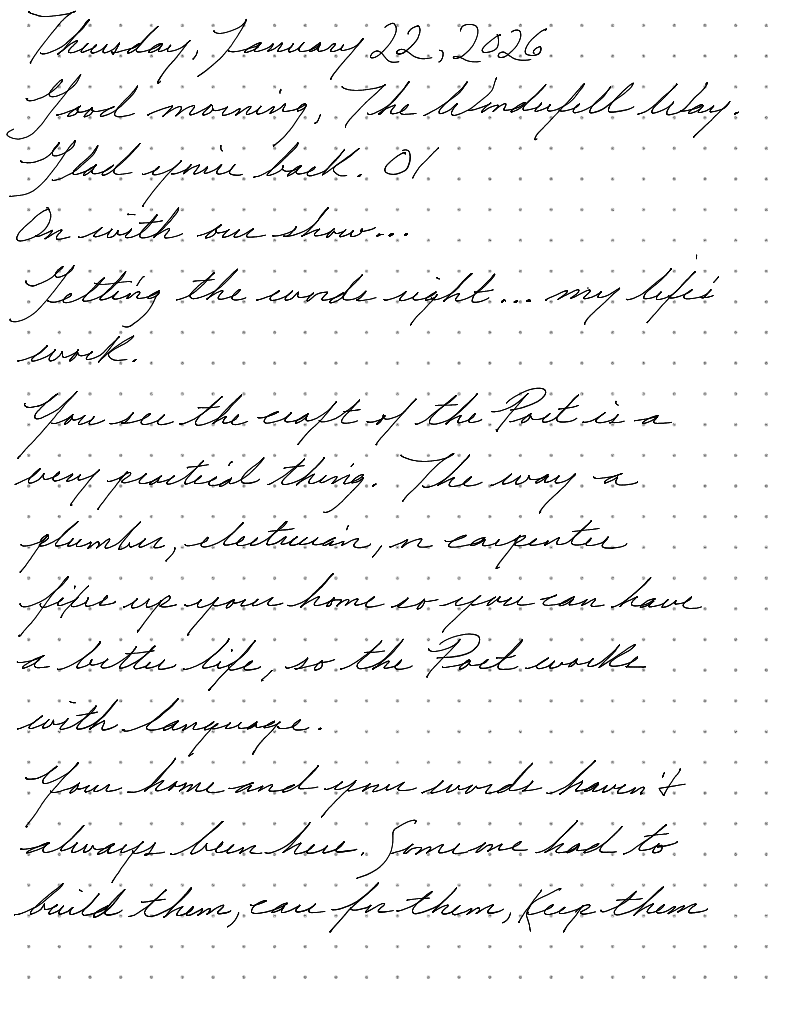 Thursday, January 22, 2026
Good morning, The Wondufell Way.
Glad you're back. 01
On with our show...
Getting the words right... my life's
work.
You see the craft of the Poet is a
very practical thing. The way a
plumber, electrician, or carpenter
fixe up your home so you can have
a better life, so the Poet works
with language.
Your home and your words haven't
always been here. Someone had to
build them, care for them, Keep them